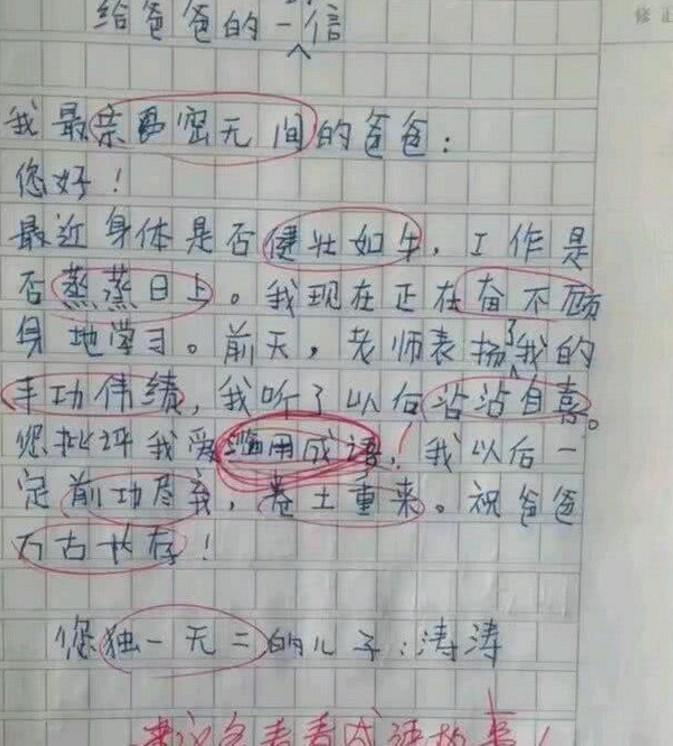 给爸爸的一信
我最亲密无间的爸爸：
您好！
最近身体是否健壮如牛，工作是
否蒸蒸日上。我现在正在奋不顾
身地学习。前天，老师表扬了我的
丰功伟绩，我听了以后沾沾自喜。
您批评我爱滥用成语，我以后一
定前功尽弃，卷土重来。祝爸爸
万古长存！
您独一无二的儿子：涛涛
建议多看看成语故事！
修正